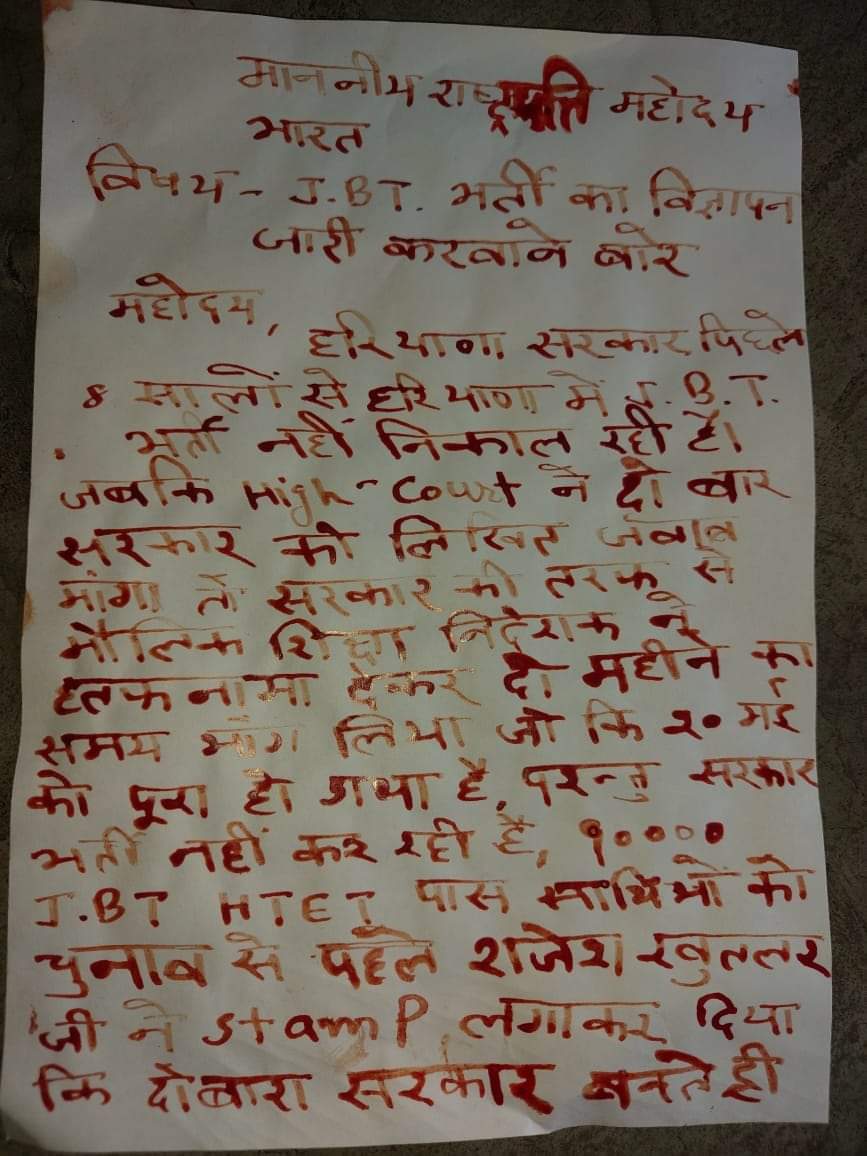 माननीय राष्ट्रपति महोदय
भारत
विषय - J.BT. भर्ती का विज्ञापन
जारी करवाने बारे
महोदय,
हरियाणा सरकार पिछले
8 सालों से हरियाणा में J.B.T.
भर्ती नहीं निकाल रही है।
जबकि High-Court ने दो बार
सरकार को लिखित जवाब
मांगा तो सरकार की तरफ से
मौलिक शिक्षा निदेशक ने
हलफनामा देकर दो महीने का
समय मांग लिया जो कि २० मई
को पूरा हो गया है, परन्तु सरकार
भर्ती नहीं कर रही है, १००००
J.BT HTET पास साथियों को
चुनाव से पहले राजेश खुल्लर
जी ने stamp लगाकर दिया
कि दोबारा सरकार बनते ही